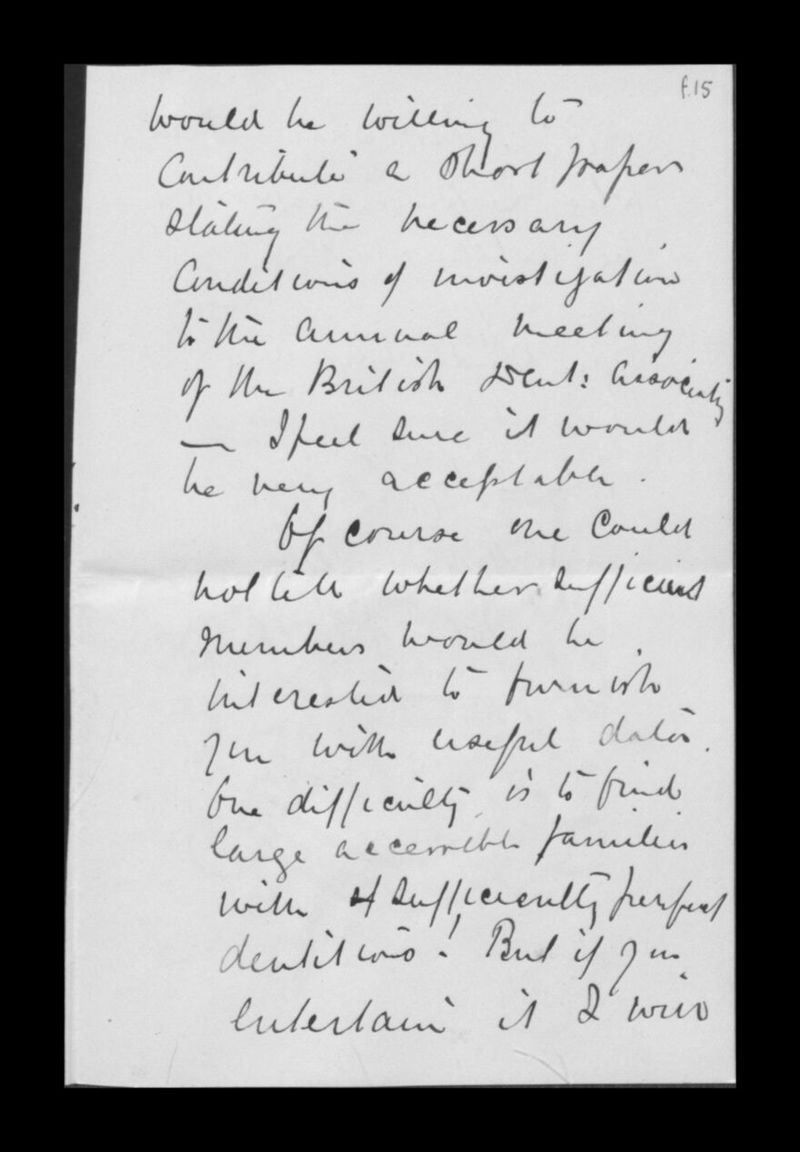 f.15
would be willing to
contribute a short paper
stating the necessary
conditions of investigation
to the annual meeting
of the British Dent: Association
— I feel sure it would
be very acceptable.
Of course one could
not tell whether sufficient
members would be
interested to furnish
you with useful data.
One difficulty is to find
large accessible families
with sufficiently perfect
dentitions! But if you
entertain it I will